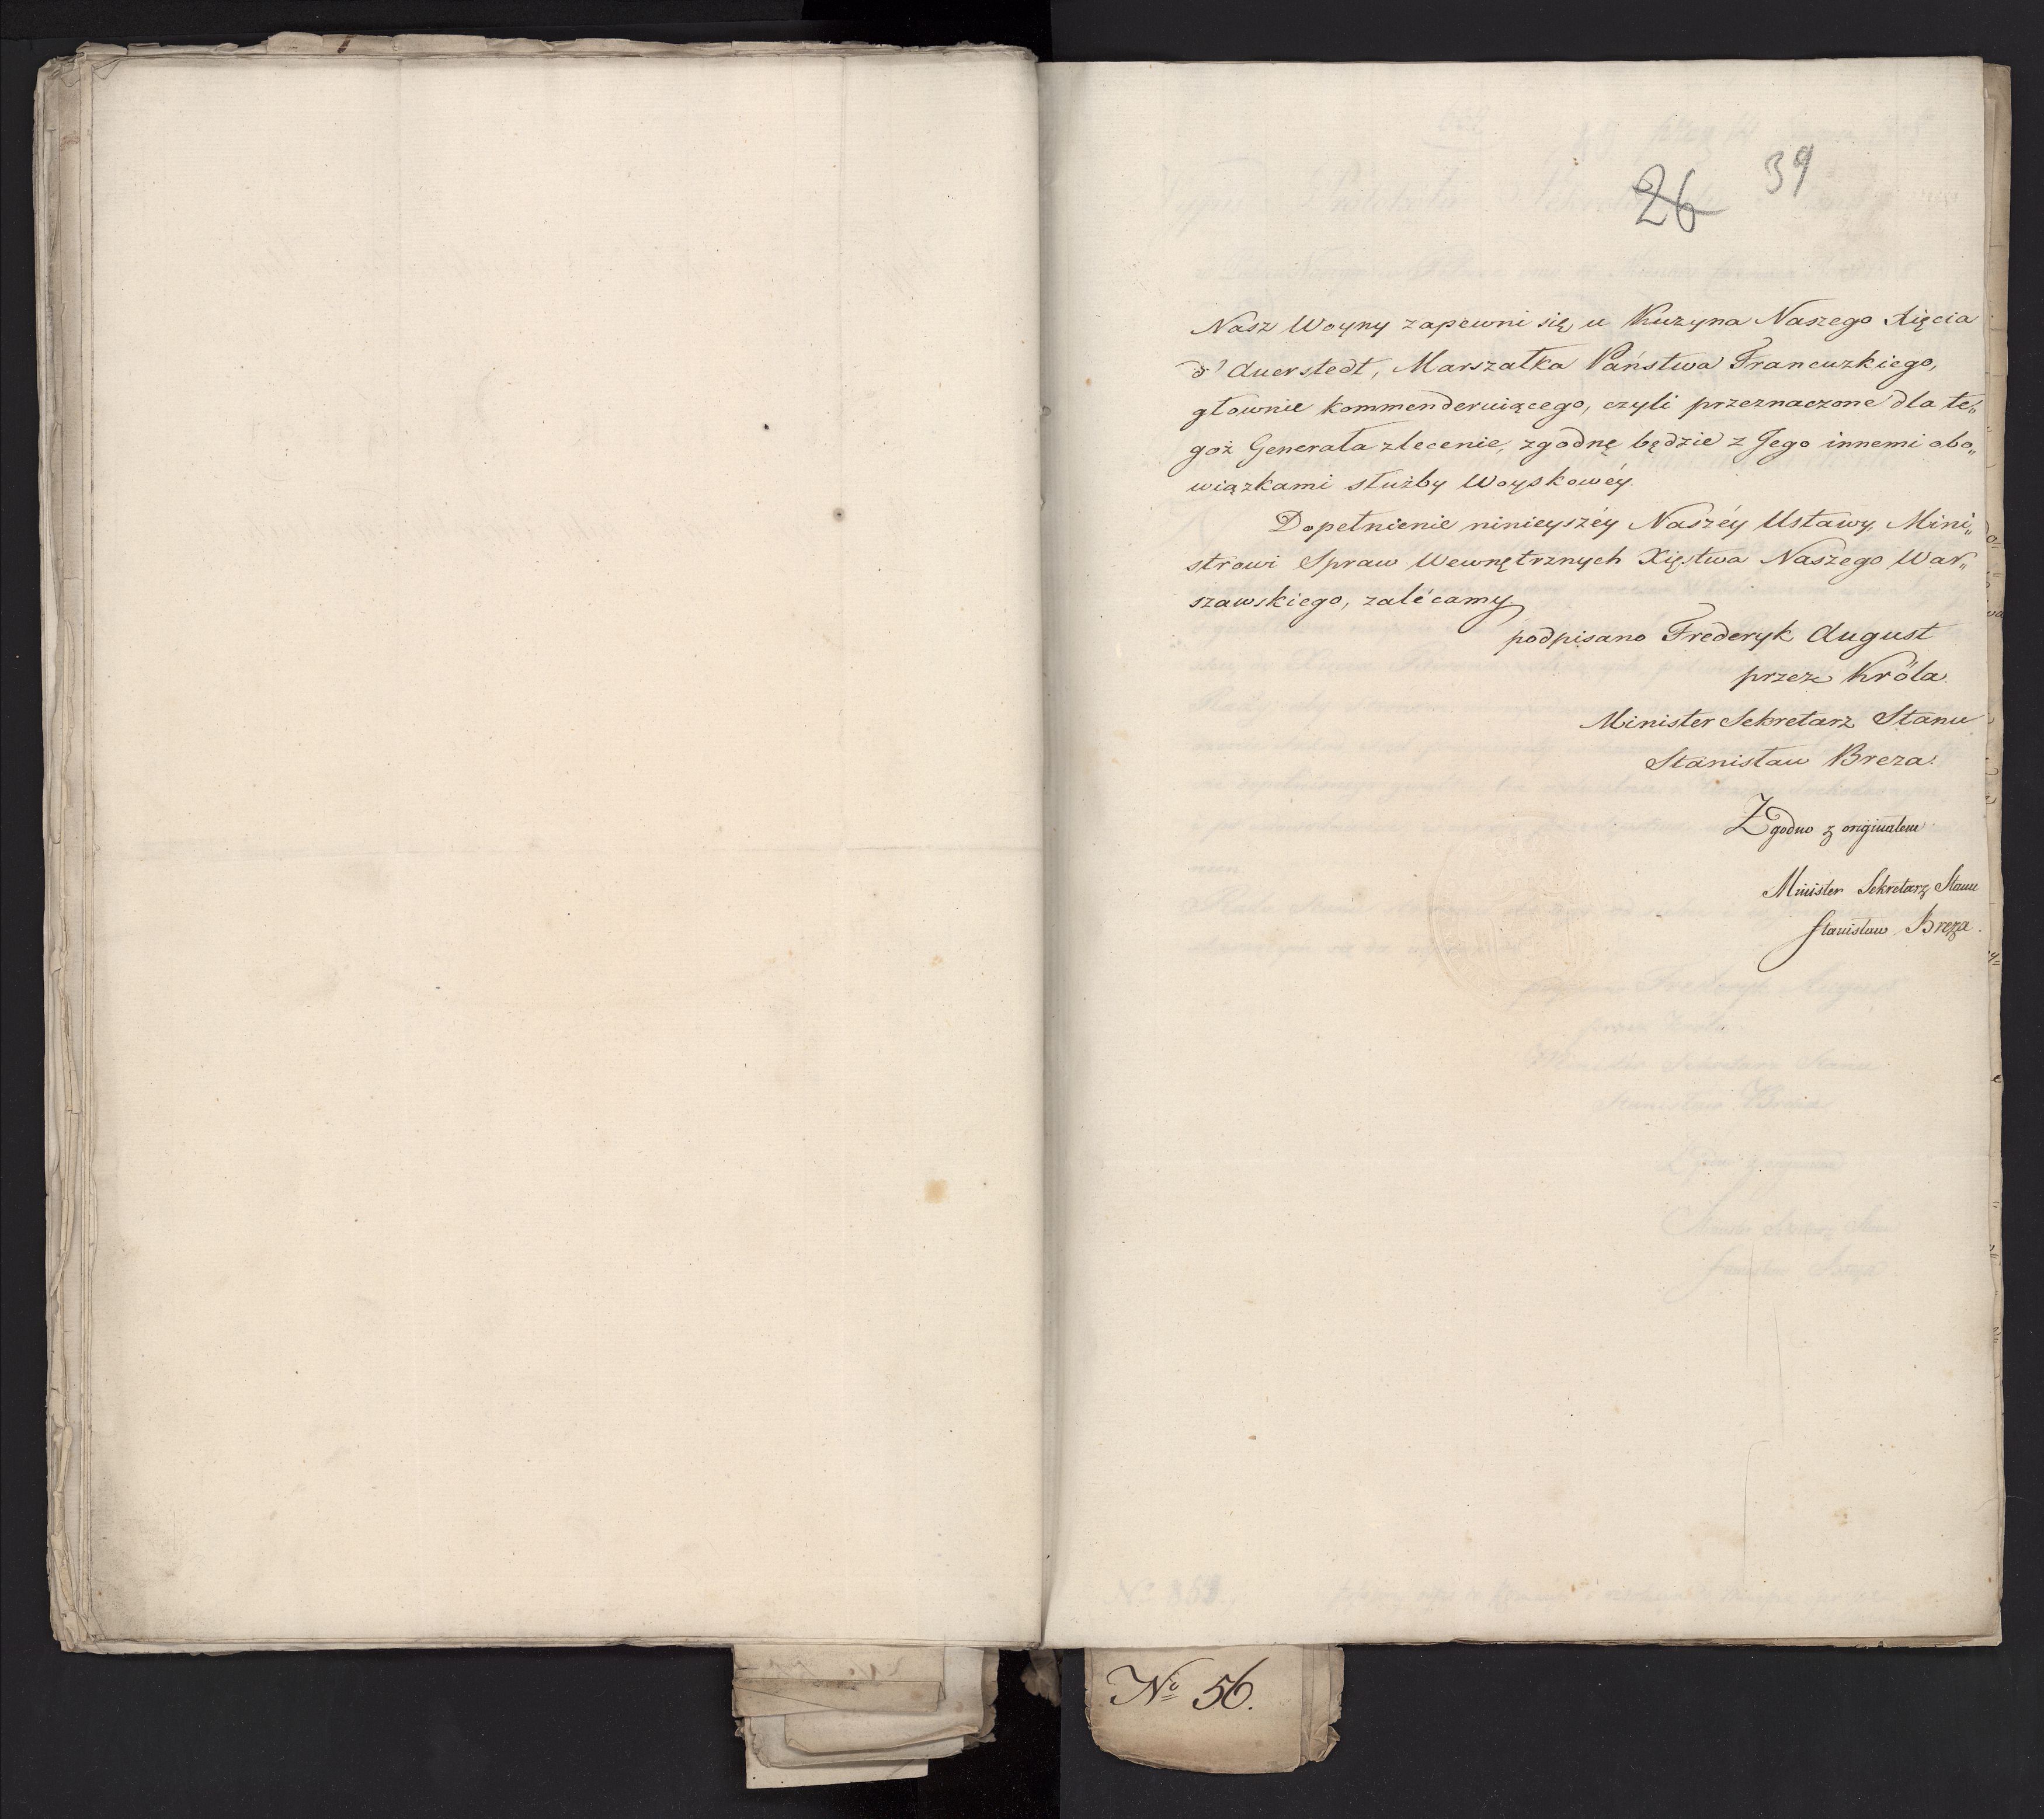 26 39
Nasz Woyny zapewni się, u Kuzyna Naszego Xięcia
d'Auerstedt, Marszałka Państwa Francuzkiego,
głownie kommenderuiącego, czyli przeznaczone dla te„
goż Generała zlecenie, zgodnę będzie z Jego innemi obo„
wiązkami służby Woyskowéy.
Dopełnienie ninieyszéy Naszéy Ustawy, Mini„
strowi Spraw Wewnętrznych Xięstwa Naszego War„
szawskiego, zalécamy.
podpisano Frederyk August
przez Króla
Minister Sekretarz Stanu
Stanisław Breza.
Zgodno z originałem
Minister Sekretarz Stanu
Stanisław Breza.
No 56.